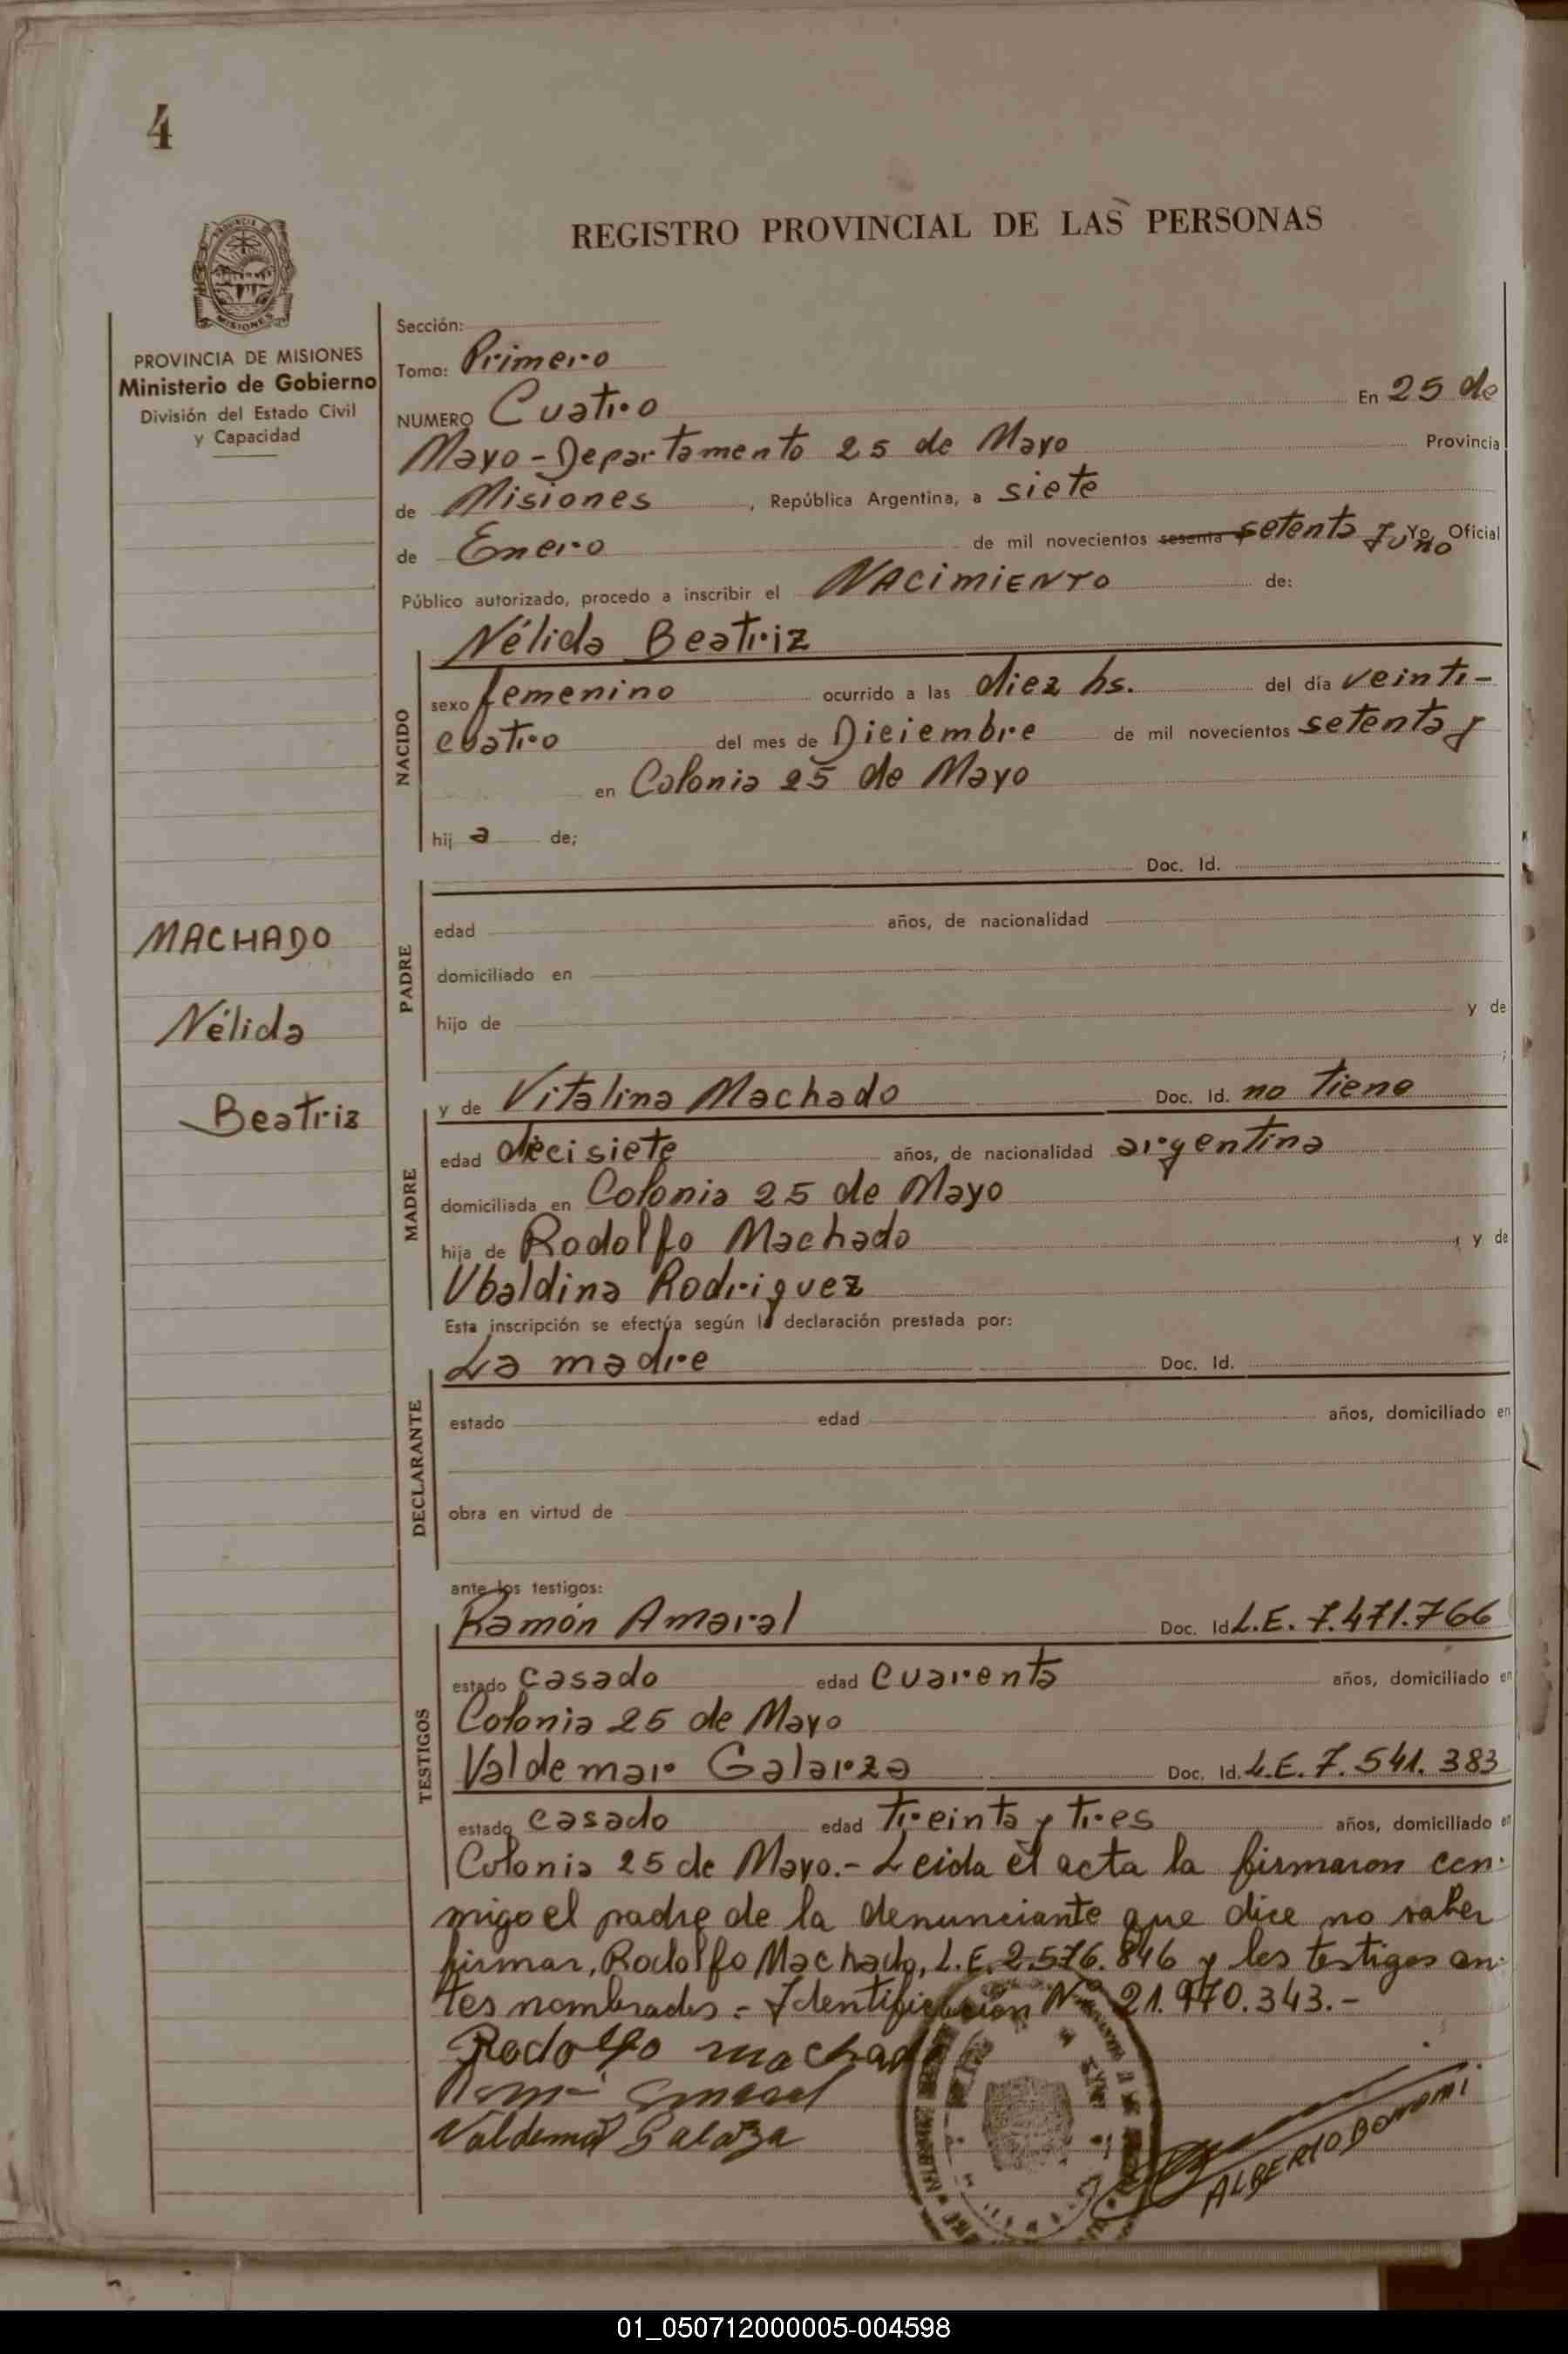 4
REGISTRO PROVINCIAL DE LAS PERSONAS
MISIONES
PROVINCIA DE MISIONES
Ministerio de Gobierno
División del Estado Civil
y Capacidad
Sección:
Tomo: Primero
NUMERO Cuatro En 25 de
Mayo - Departamento 25 de Mayo Provincia
de Misiones, República Argentina, a siete
de Enero de mil novecientos sesenta setenta y uno Yo, Oficial
Público autorizado, procedo a inscribir el NACIMIENTO de:
NACIDO
Nélida Beatriz
sexo femenino ocurrido a las diez hs. del día veinti-
cuatro del mes de Diciembre de mil novecientos setenta y
en Colonia 25 de Mayo
hij a de;
Doc. Id.
MACHADO
Nélida
Beatriz
PADRE
edad años, de nacionalidad
domiciliado en
hijo de y de
;
MADRE
y de Vitalina Machado Doc. Id. no tiene
edad diecisiete años, de nacionalidad argentina
domiciliada en Colonia 25 de Mayo
hija de Rodolfo Machado y de
Ubaldina Rodriguez
Esta inscripción se efectúa según la declaración prestada por:
DECLARANTE
La madre Doc. Id.
estado edad años, domiciliado en
obra en virtud de
ante los testigos:
TESTIGOS
Ramón Amaral Doc. Id L.E. 7.471.766
estado casado edad cuarenta años, domiciliado en
Colonia 25 de Mayo
Valdemar Galarza Doc. Id. L.E. 7.541.383
estado casado edad treinta y tres años, domiciliado en
Colonia 25 de Mayo.- Leida el acta la firmaron con-
migo el padre de la denunciante que dice no saber
firmar, Rodolfo Machado, L.E. 2.576.846 y los testigos an-
tes nombrados.- Identificación Nº 21.970.343.-
Rodolfo machado
Valdemar Galarza
ALBERTO BONOMI
01_050712000005-004598